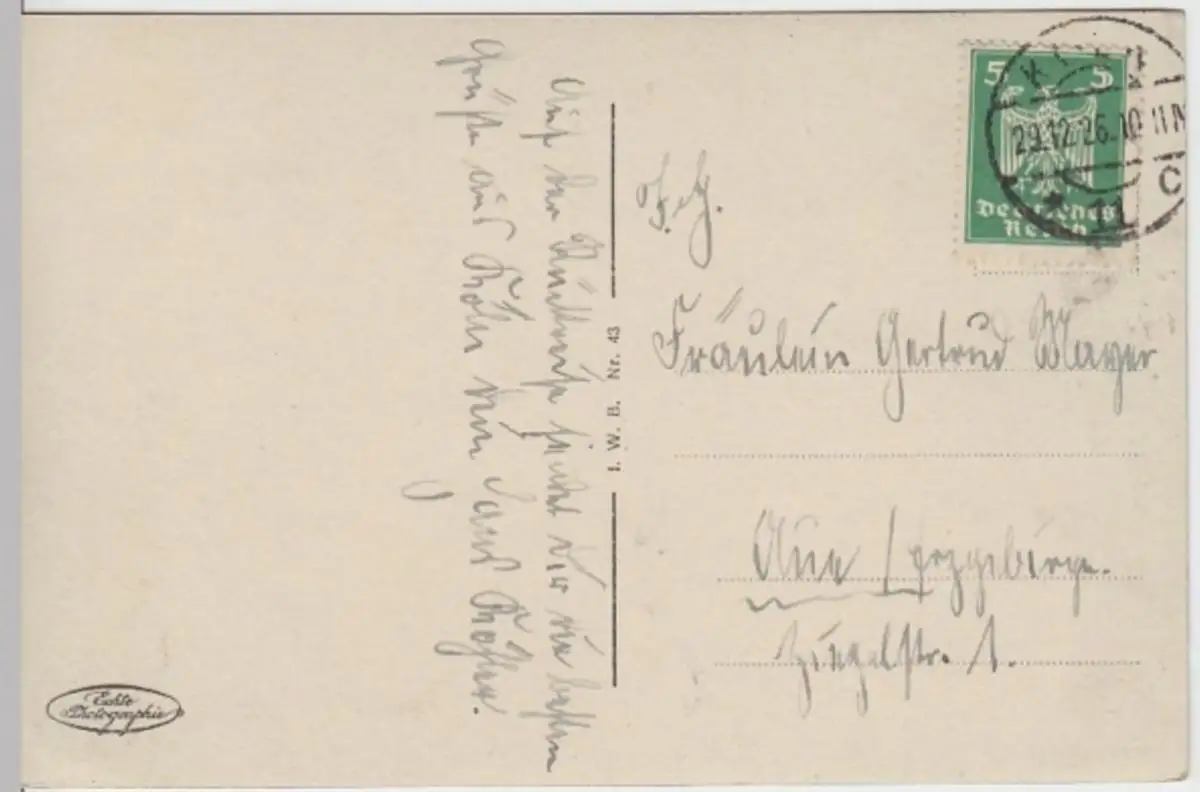 Auf der Rückreise sendet Dir die besten
Grüße aus Köln Dein
I. W. B. Nr. 43
5 5
Deutsches
Reich
KÖLN
29.12.26.10-11 N
* 11 C
Fräulein Gertrud Mayer
Aue / Erzgebirge.
Ziegelstr. 1.
Echte
Photographie